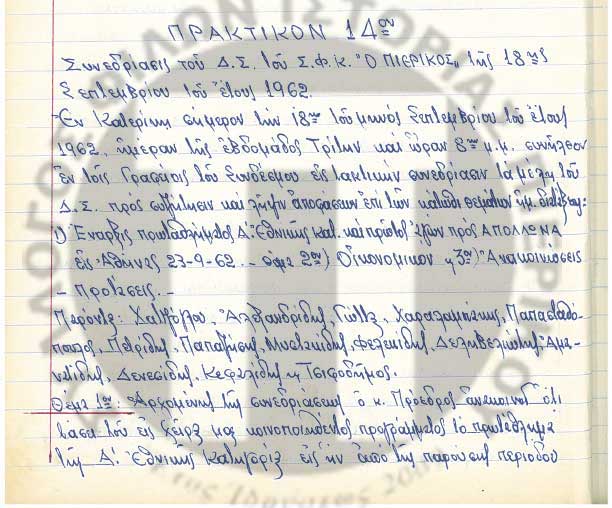 ΠΡΑΚΤΙΚΟΝ 14ον
Συνεδρίασις τοῦ Δ.Σ. τοῦ Σ.Φ.Κ. "Ο ΠΙΕΡΙΚΟΣ" τῆς 18ης
Σεπτεμβρίου τοῦ ἔτους 1962.
Ἐν Κατερίνῃ σήμερον τὴν 18ην τοῦ μηνὸς Σεπτεμβρίου τοῦ ἔτους
1962, ἡμέραν τῆς ἑβδομάδος Τρίτην καὶ ὥραν 8ην μ.μ. συνῆλθον
ἐν τοῖς Γραφείοις τοῦ Συνδέσμου εἰς τακτικὴν συνεδρίασιν τὰ μέλη τοῦ
Δ.Σ. πρὸς συζήτησιν καὶ λῆψιν ἀποφάσεων ἐπὶ τῶν κάτωθι θεμάτων
1) Ἔναρξις πρωταθλήματος Α' Ἐθνικῆς κατ. καὶ πρῶτος ἀγὼν πρὸς ΑΠΟΛΛΩΝΑ
εἰς Ἀθήνας 23-9-62. - 2ον) Οἰκονομικὸν 3ον) Ἀνακοινώσεις
- Προτάσεις. -
Παρόντες: Χατζόγλου, Ἀλεξανδρίδης, Χαραλαμπίδης, Παπασταθό-
πουλος, Πετρίδης, Φελεκίδης, Δεληβελιώτης, Ἀμα-
νατίδης, Δενεσίδης, Κεφαλίδης Τσιφοδῆμος.
Θέμα 1ον: Ἀρχομένης τῆς συνεδριάσεως ὁ κ. Πρόεδρος ἀνακοινοῖ ὅτι
βάσει τοῦ εἰς χεῖρας μας κοινοποιηθέντος προγράμματος τὸ πρωτάθλημα
τῆς Α' Ἐθνικῆς Κατηγορίας εἰς ἣν ἀπὸ τῆς παρούσης περιόδου